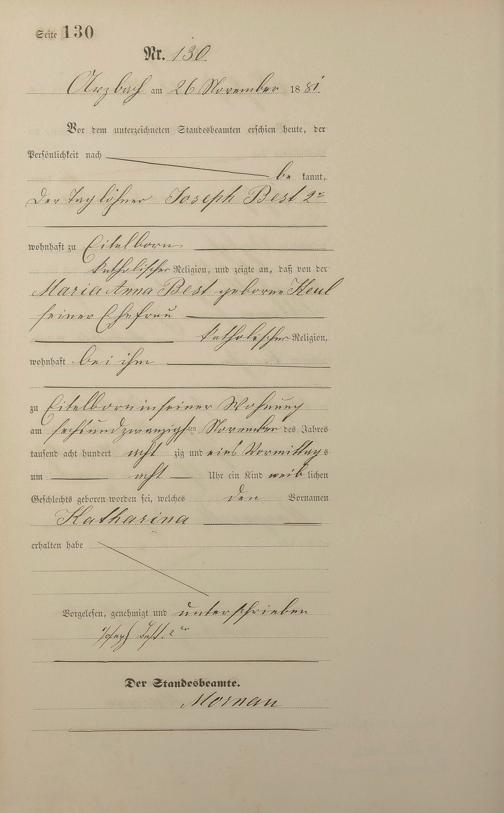 Seite 130
Nr. 130.
Arzbach am 26 November 1881.
Vor dem unterzeichneten Standesbeamten erschien heute, der
Persönlichkeit nach
be kannt,
der Taglöhner Joseph Best 2r
wohnhaft zu Eitelborn
katholischer Religion, und zeigte an, daß von der
Maria Anna Best geborne Keul
seiner Ehefrau
katholischer Religion,
wohnhaft bei ihm
zu Eitelborn in seiner Wohnung
am sechsundzwanzigsten November des Jahres
tausend acht hundert acht zig und eins Vormittags
um acht Uhr ein Kind weib lichen
Geschlechts geboren worden sei, welches den Vornamen
Katharina
erhalten habe
Vorgelesen, genehmigt und unterschrieben
Joseph Best 2er
Der Standesbeamte.
Mornau